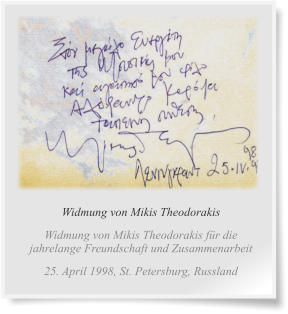 Στον μεγάλο Ευεργέτη
της Μουσικής μου
και αγαπητό μου φίλο
Αλέξανδρο
Λένινγκραντ 25.IV.98
Widmung von Mikis Theodorakis
Widmung von Mikis Theodorakis für die
jahrelange Freundschaft und Zusammenarbeit
25. April 1998, St. Petersburg, Russland